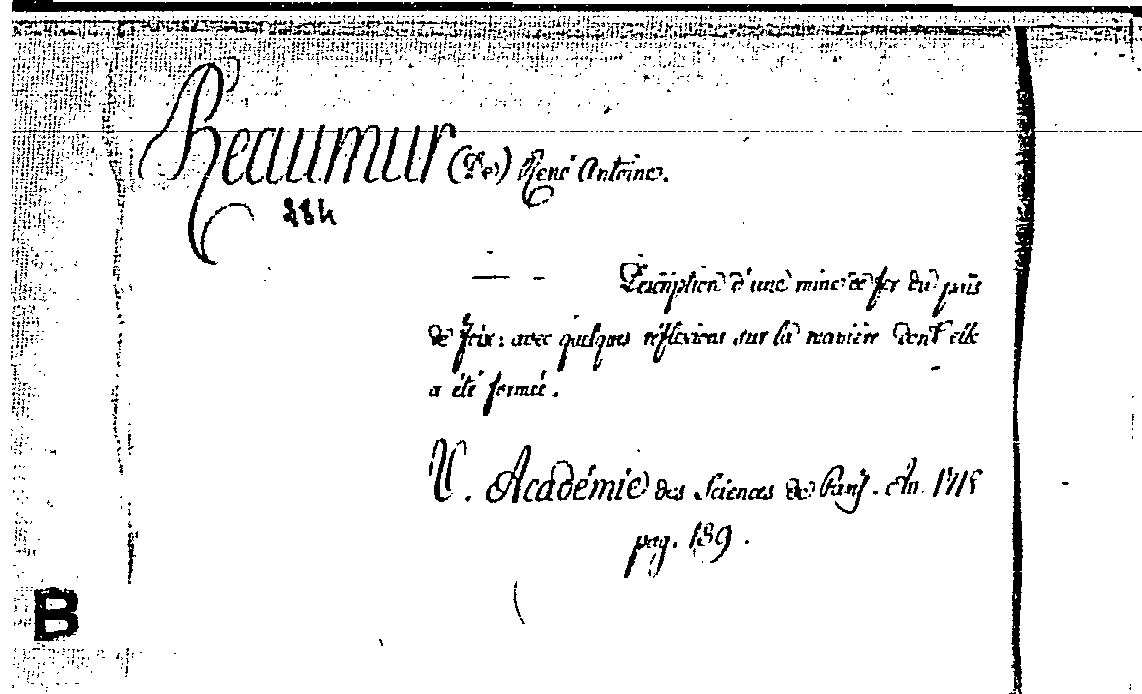 Reaumur (De) René Antoine.
284
— - Description d'une mine de fer du païs
de foix; avec quelques réflexions sur la manière dont elle
a été formée.
V. Académie des Sciences de Paris. An. 1718
pag. 139.
B